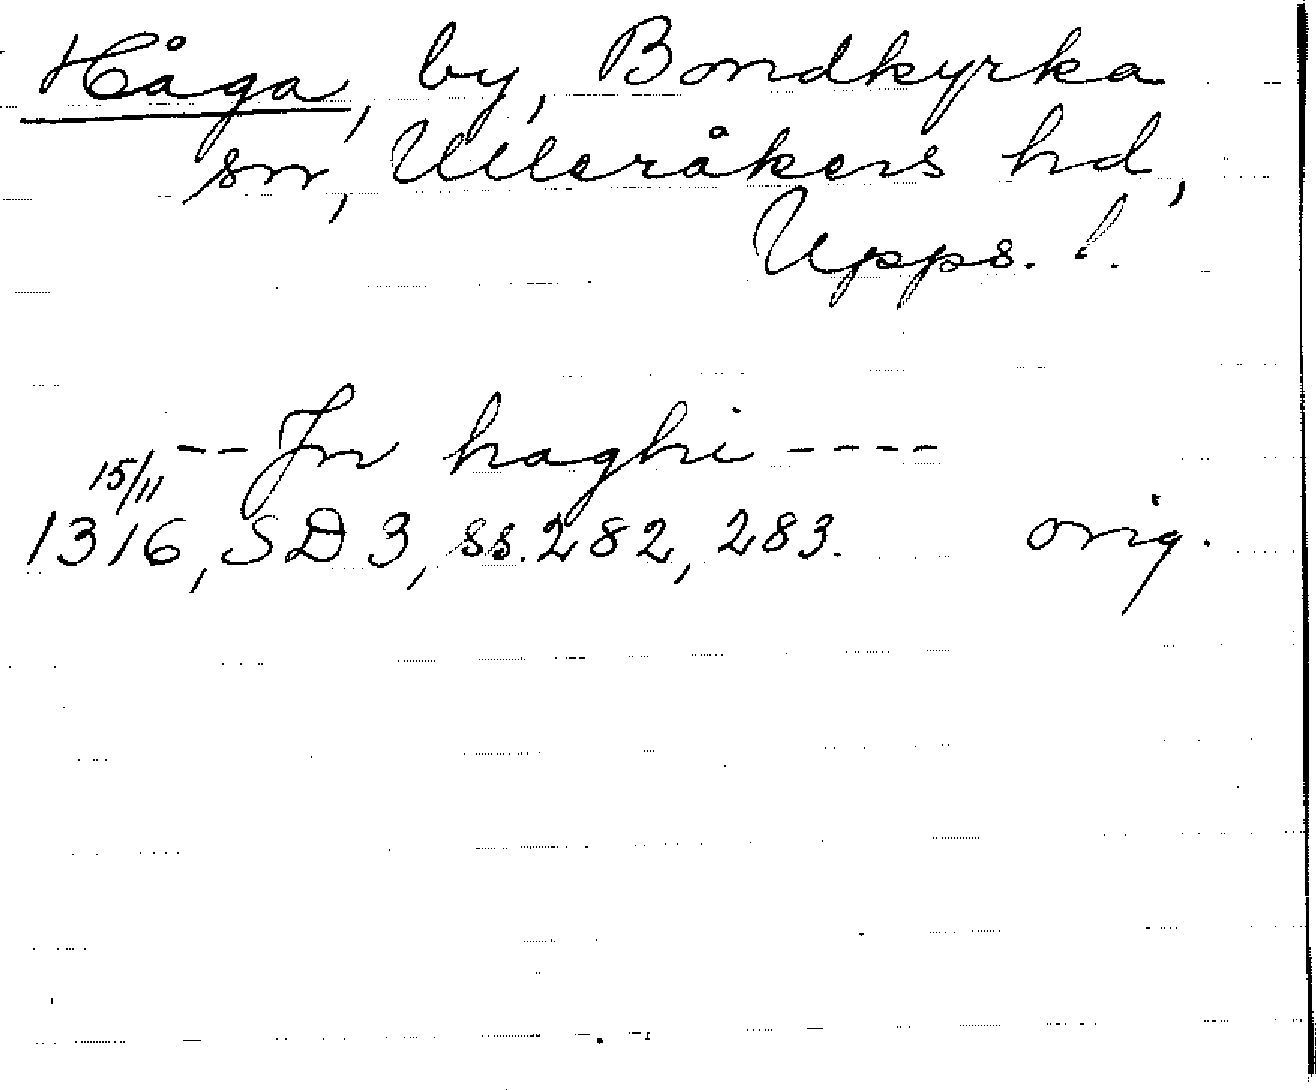 Håga, by, Bondkyrka
sn, Ulleråkers hd,
Upps. l.
-- Jn haghi ----
15/11
1316, SD 3, ss. 282, 283. orig.